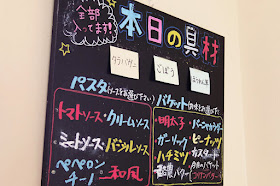 全部入ってます!
本日の具材
タラバガニ
ごぼう
ほうれん草
パスタ(ソースをお選び下さい)
トマトソース・クリームソース
ミートソース・バジルソース
ペペロンチーノ・和風
バゲット
明太子
ガーリック・ピーナッツ
ハチミツ・カスタード